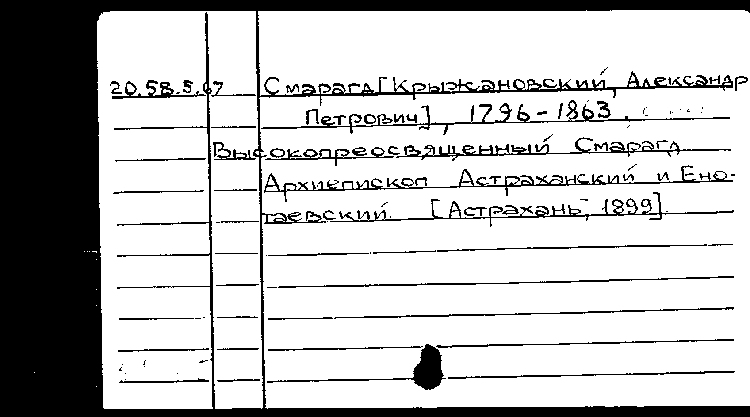 20.58.5.67 Смарагд [Крыжановский, Александр
Петрович], 1796-1863.
Высокопреосвященный Смарагд
Архиепископ Астраханский и Ено-
таевский. [Астрахань, 1899].